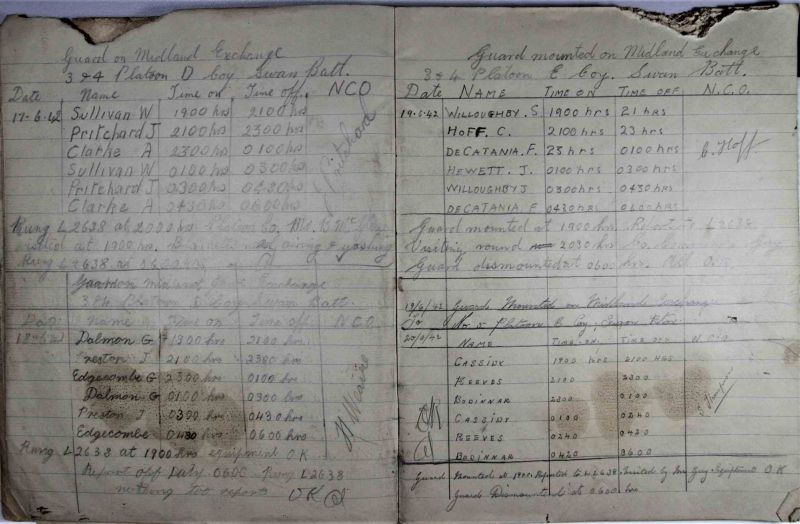 Guard on Midland Exchange
3 & 4 Platoon D Coy Swan Batt.
Date Name Time on Time off NCO
17-6-42 Sullivan W 1900 hrs 2100 hrs
Pritchard J 2100 hrs 2300 hrs
Clarke A 2300 hrs 0100 hrs
Sullivan W 0100 hrs 0300 hrs
Pritchard J 0300 hrs 0430 hrs
Clarke A 0430 hrs 0600 hrs
Pritchard
Rung L2638 at 2003 hrs Platoon Co. Mr. B
at 1900 hrs. airing & washing
Rung L2638 at
Guard on Midland Exchange
3 & 4 Platoon D Coy Swan Batt.
Date Name Time on Time off N.C.O.
Dalmon G 1900 hrs 2100 hrs
Preston J 2100 2300 hrs
Edgecombe G 2300 hrs 0100 hrs
Dalmon G 0100 hrs 0300 hrs
Preston J 0300 hrs 0430 hrs
Edgecombe 0430 hrs 0600 hrs
Rung L2638 at 1900 hrs equipment OK
Report off Duty 0600 Rung L2638
nothing to report OK
Guard mounted on Midland Exchange
3 & 4 Platoon E Coy. Swan Batt.
Date NAME TIME ON TIME OFF N.C.O.
19-6-42 WILLOUGHBY. S 1900 hrs 21 HRS
HOFF, C. 2100 HRS 23 HRS
DECATANIA. F. 23 HRS 0100 HRS
C. Hoff
HEWETT. J. 0100 HRS 0300 HRS
WILLOUGHBY J 0300 HRS 0430 HRS
DECATANIA. F 0430 HRS 0600 HRS
Guard mounted at 1900 hrs Reported L2638
Visiting round 2030 hrs Co.
Guard dismounted at 0600 hrs. All O.K
19/6/42 Guard Mounted on Midland Exchange
To No 5 Platoon B Coy,
20/6/42 NAME TIME-ON TIME OFF N.C.O
CASSIDY 1900 HRS 2100 HRS
REEVES 2100 2300
BODINNAR 2300 0100
OK CASSIDY 0100 0240
REEVES 0240 0420
BODINNAR 0420 0600
Guard Mounted at 1900. Reported to L2638. Visited by Mr Guy. Equipment O K
Guard Dismounted at 0600 hrs